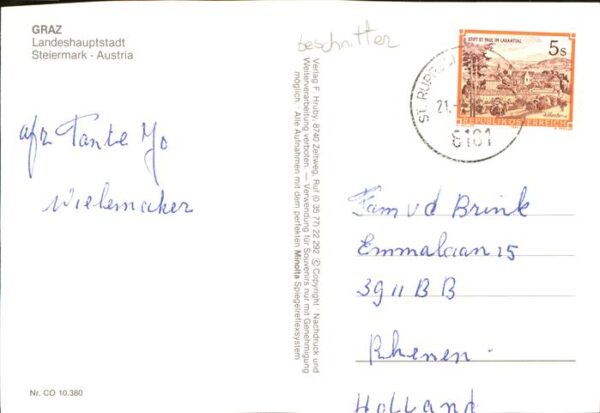 GRAZ
Landeshauptstadt
Steiermark - Austria
beschnitten
STIFT ST. PAUL IM LAVANTTAL
5 S
REPUBLIK ÖSTERREICH
ST. RUPRECHT
21.
8181
afz Tante Jo
Wielemaker
Verlag F. Hruby, 8740 Zeltweg, Ruf (0 35 77) 22 292 © Copyright · Nachdruck und
Weiterverarbeitung verboten. — Verwendung für Souvenirs nur mit Genehmigung
möglich. · Alle Aufnahmen mit dem perfekten Minolta Spiegelreflexsystem
Fam v d Brink
Emmalaan 15
3911 B B
Rhenen
Holland
Nr. CO 10.380